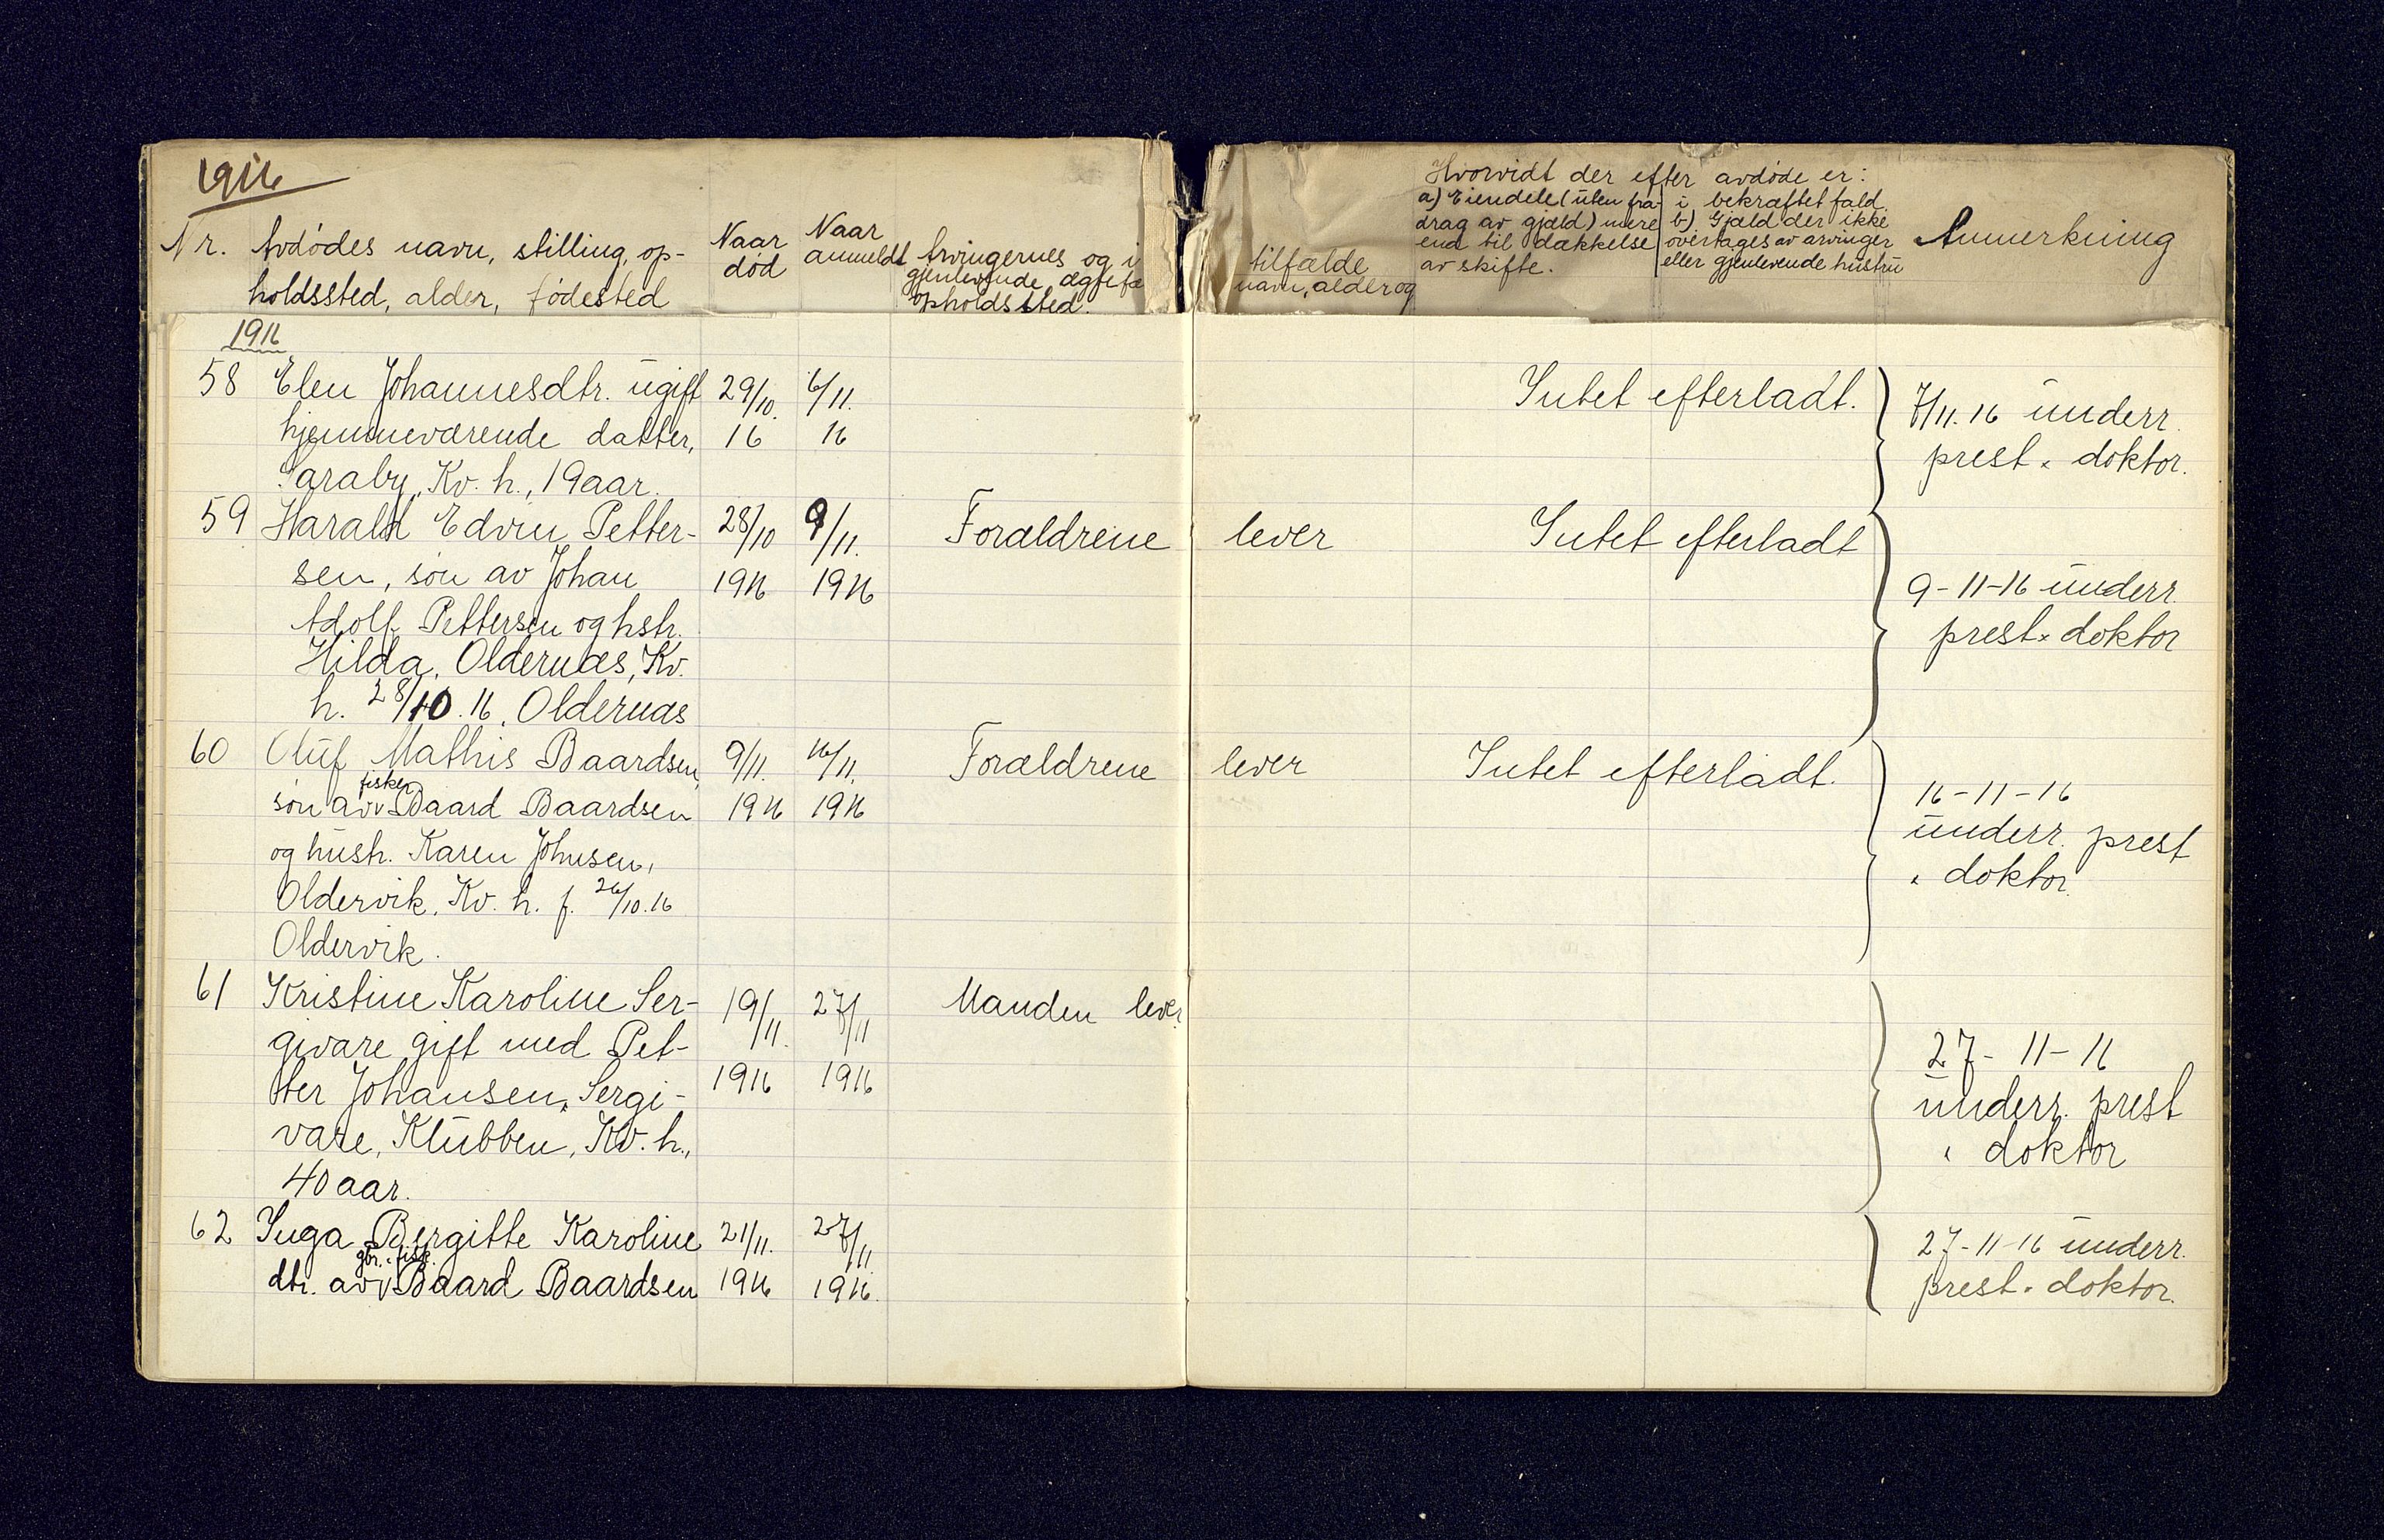 1916
Nr. Avdödes navn, stilling, op-
holdssted, alder, fødested
Naar
död
Naar
anmeldt
Arvingernes og i
gjenlevende ægtefæ
opholdssted.
tilfælde
navn, alder og
Hvorvidt der efter avdøde er:
a) Eiendele (uten fra-
drag av gjæld) mere
end til dækkelse
av skifte.
i bekræftet fald
b) Gjæld der ikke
overtages av arvinger
eller gjenlevende hustru
Anmerkning
1916
58 Elen Johannesdtr. ugift 29/10. 6/11. Intet efterladt. 7/11. 16 underr.
hjemmeværende datter, 16 16 prest & doktor.
Saraby, Kv. h., 19 aar.
59 Harald Edvin Petter- 28/10 9/11. Forældrene lever Intet efterladt
sen, søn av Johan 1916 1916 9-11-16 underr.
Adolf Pettersen og hstr. prest & doktor
Hilda, Oldernæs, Kv.
h. 28/10. 16, Oldernæs
60 Oluf Mathis Baardsen, 9/11. 16/11. Forældrene lever Intet efterladt.
fisker
søn av Baard Baardsen 1916 1916 16-11-16
og hustr. Karen Johnsen, underr. prest
Oldervik, Kv. h. f. 26/10. 16 & doktor.
Oldervik.
61 Kristine Karoline Ser- 19/11. 27/11 Manden lever
givare gift med Pet- 27-11-16
ter Johansen Sergi- 1916 1916 underr. prest
vare, Klubben, Kv. h., & doktor
40 aar.
62 Inga Bergitte Karoline 21/11. 27/11 27-11-16 underr.
gbr. & fisk.
dtr. av Baard Baardsen 1916 1916. prest & doktor.